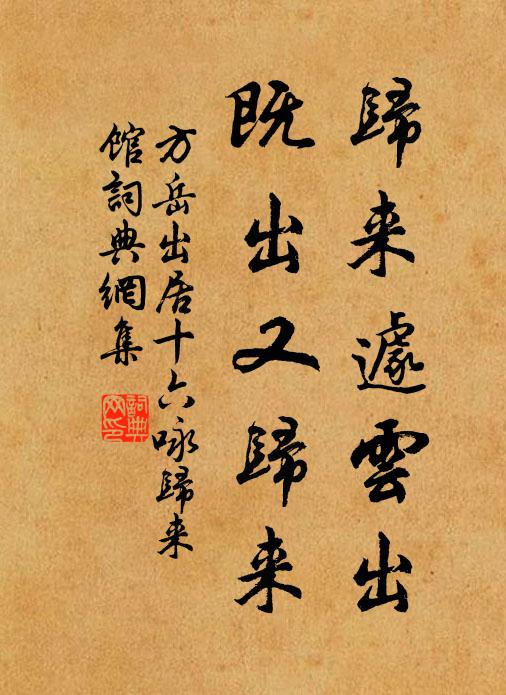 歸来遽雲出
既出又歸来
方岳出居十六咏歸来
館詞典網集
詞典
网印